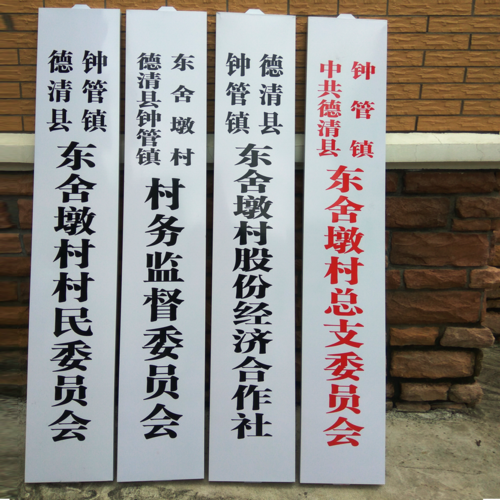 德清县
钟管镇
东舍墩村村民委员会
德清县钟管镇
东舍墩村
村务监督委员会
德清县
钟管镇
东舍墩村股份经济合作社
中共德清县
钟管镇
东舍墩村总支委员会